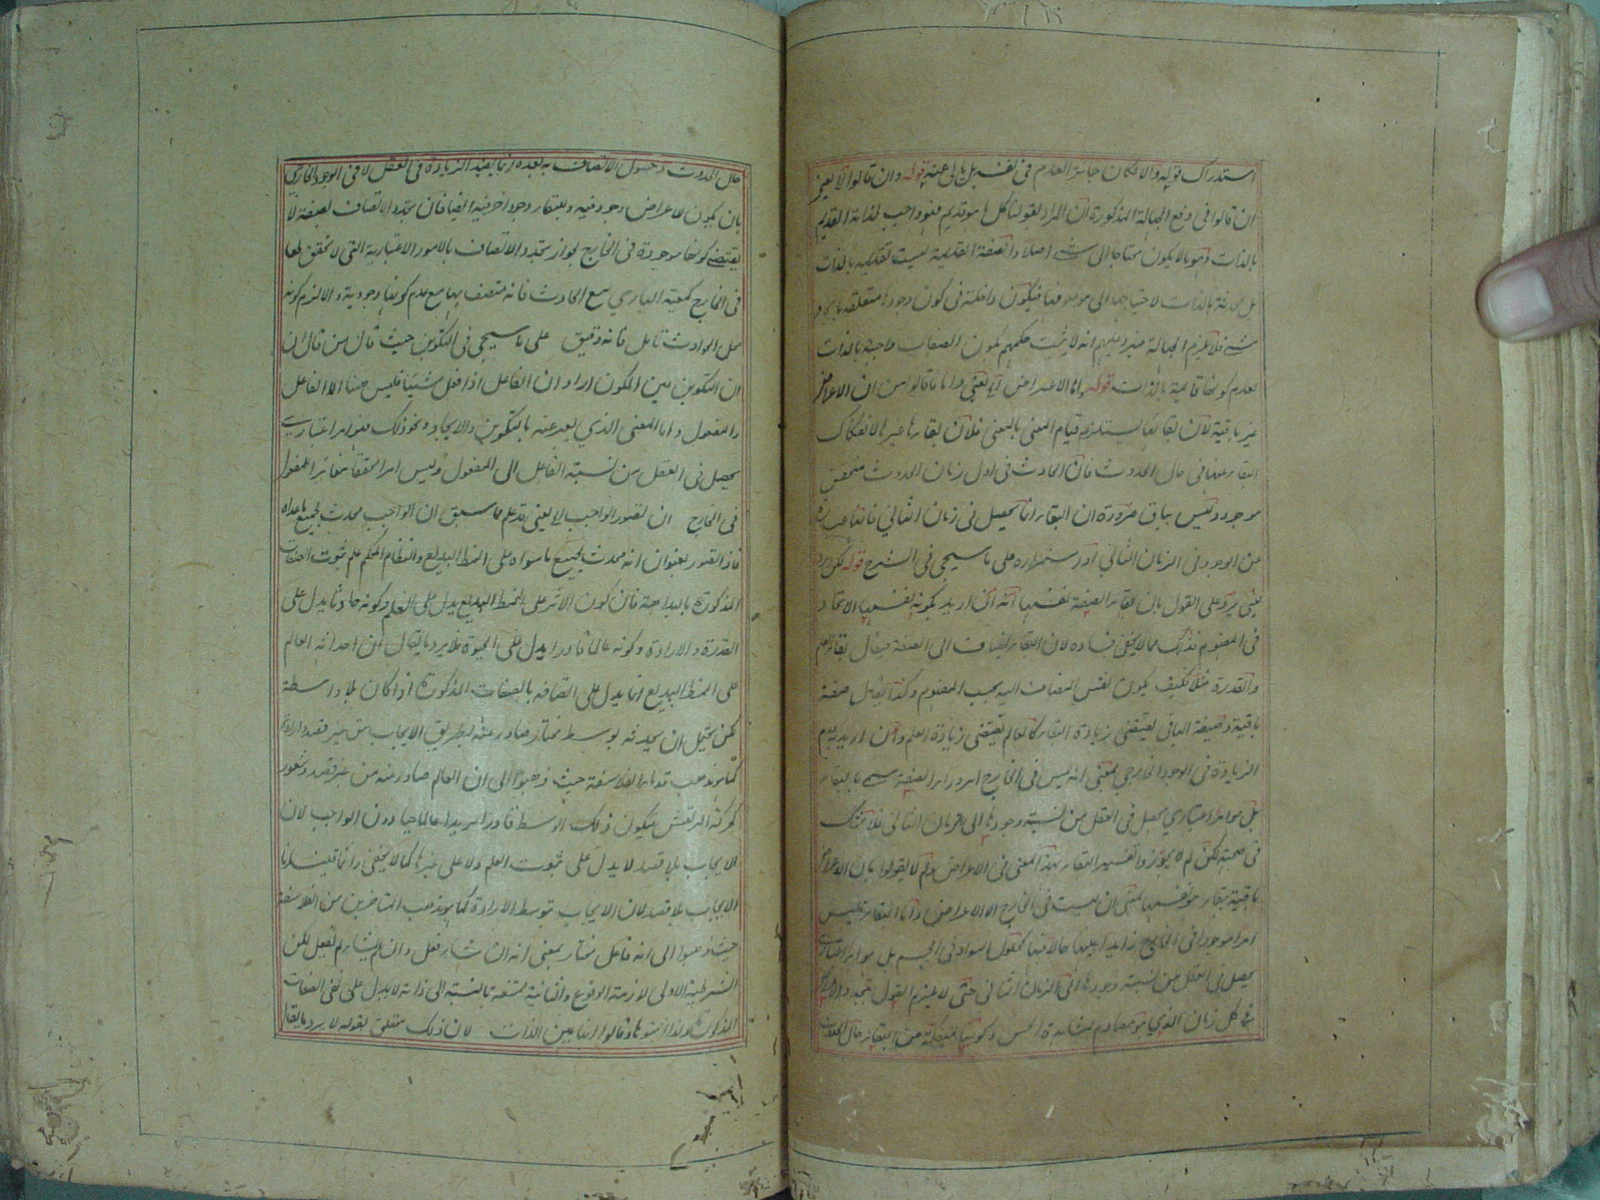 استدراك قوله والامكان جائز العدم في نفسه بل بالى عنه قوله وان قالوا لا يعني
ان قالوا في دفع الجهالة المذكورة ان المراد بقولنا كل ما هو قديم فهو واجب لذاته القديم
بالذات وهو بان لا يكون محتاجا الى شيء اصلا والصفة القديمة ليست بقديمة بالذات
بل حادثة بالذات لاحتياجها الى موصوفها فيكون داخلة في كون وجودها متعلقة بايجاد
شيء فلا يلزم الجهالة فيرد عليهم انه لا يثبت حكمهم بكون الصفات واجبة بالذات
لعدم كونها قديمة بالذات قوله واما الاعراض الى يعني واما ما قالوا من ان الاعراض
غير باقية لان بقاءها يستلزم قيام المعنى بالمعنى فلان بقاءها غيرها لانفكاك
البقاء عنها في حال الحدوث فان الحادث في اول زمان الحدوث متحقق
موجود وليس بباق ضرورة ان البقاء انما يحصل في زمان الثاني فانه عبارة
عن الوجود في الزمان الثاني او استمراره على ما سيجيء في الشرح قوله لكن يرد
يعني يرد على القول بان بقاء الصفة نفسها انه ان اريد بكونه نفسها الاتحاد
في المفهوم فذلك مما لا يخفى فساده لان البقاء يضاف الى الصفة فيقال بقاء العلم
والقدرة مثلا فكيف يكون نفس المضاف اليه بحسب المفهوم وكذا يقال صفة
باقية وصيغة الباقي يقتضي زيادة البقاء كالعالم يقتضي زيادة العلم وان اريد به عدم
الزيادة في الوجود الخارجي بمعنى انه ليس في الخارج امر وراء الصفة يسمى بالبقاء
بل هو امر اعتباري يحصل في العقل من نسبة وجودها الى الزمان الثاني فلا شك
في صحته لكن لم لا يجوز تفسير البقاء بهذا المعنى في الاعراض ولم لا يقولوا بان الاعراض
باقية ببقاء هو نفسها بمعنى ان ليست في الخارج الا الاعراض واما البقاء فليس
امرا موجودا في الخارج زائدا عليها حالا فيها كحلول السواد في الجسم بل هو امر اعتباري
يحصل في العقل من نسبة وجودها الى الزمان الثاني حتى لا يلزم القول بتجدد الاعراض
في كل زمان الذي هو مصادم مشاهدة الحس وكونها منفكة عن البقاء حال الحدوث
حال الحدوث وحصول الاتصاف به بعده انما يفيد الزيادة في العقل لا في الوجود الخارجي
بان يكون للاعراض وجود فيه وللبقاء وجود اخر فيه ايضا فان تجدد الاتصاف بصفة لا
يقتضي كونها موجودة في الخارج لجواز تجدد الاتصاف بالامور الاعتبارية التي لا تحقق لها
في الخارج كمعية الباري مع الحادث فانه متصف بها مع عدم كونها وجودية والا لزم كونه
محل الحوادث تامل فانه دقيق على ما سيجيء في التكوين حيث قال من قال ان
ان التكوين عين المكون اراد ان الفاعل اذا فعل شيئا فليس ههنا الا الفاعل
والمفعول واما المعنى الذي يعبر عنه بالتكوين والايجاد ونحو ذلك فهو امر اعتباري
يحصل في العقل من نسبة الفاعل الى المفعول وليس امرا محققا مغايرا للمفعول
في الخارج ان تصور الواجب الى يعني قد علم فيما سبق ان الواجب محدث لجميع ما عداه
فاذا تصور بعنوان انه محدث لجميع ما سواه على النمط البديع والنظام المحكم علم ثبوت الصفات
المذكورة بالبداهة فان كون الاثر على النمط البديع يدل على العلم وكونه حادثا يدل على
القدرة والارادة وكونه عالما قادرا يدل على الحيوة فلا يرد ما يقال من ان احداثه العالم
على النمط البديع انما يدل على اتصافه بالصفات المذكورة اذا كان بلا واسطة
لكن يحتمل ان يحدثه بوسط مختار صادر عنه بطريق الايجاب من غير قصد وارادة
كما هو مذهب قدماء الفلاسفة حيث ذهبوا الى ان العالم صادر عنه من غير قصد وشعور
كحركة المرتعش فيكون ذلك الوسط قادرا مريدا عالما حيا دون الواجب لان
الايجاب بلا قصد لا يدل على ثبوت العلم ولا على غيرها كما لا يخفى وانما قيدنا
الايجاب بلا قصد لان الايجاب بتوسط الارادة كما هو مذهب المتاخرين من الفلاسفة
حيث ذهبوا الى انه فاعل مختار بمعنى انه ان شاء فعل وان لم يشاء لم يفعل لكن
الشرطية الاولى لازمة الوقوع والثانية ممتنعة بالنسبة الى ذاته لا يدل على نفي الصفات
المذكورة ولذا اثبتوها وقالوا انها عين الذات لان ذلك متعلق بقوله لا يرد ما يقال